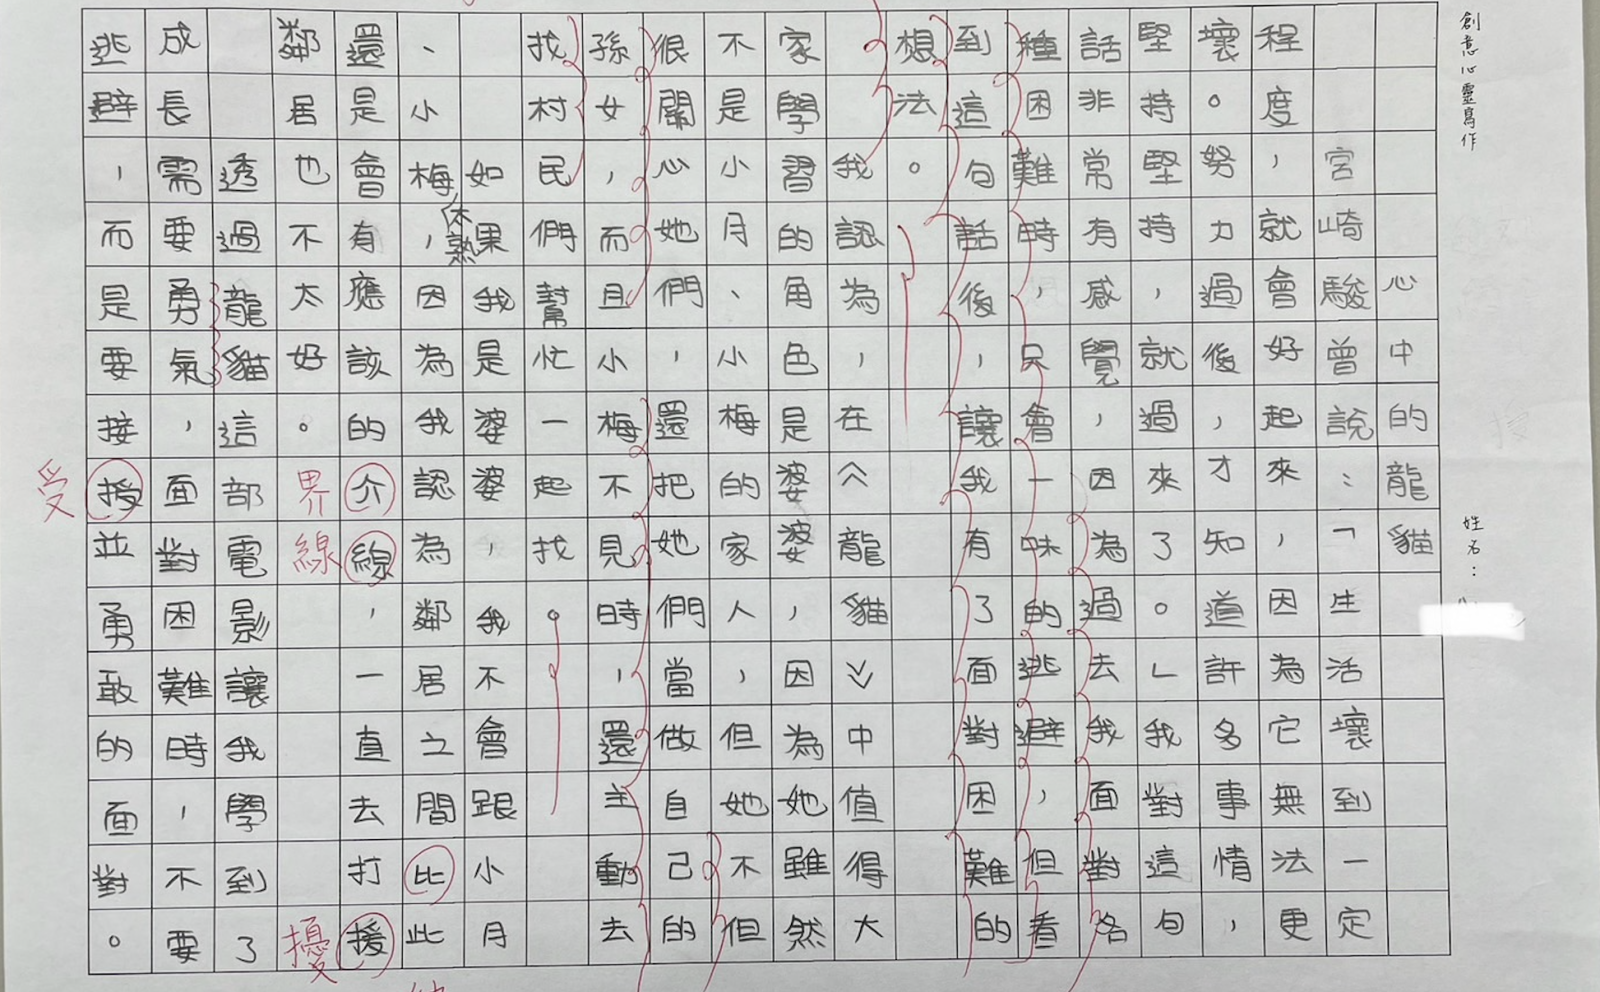 創意心靈寫作
姓名:
心中的龍貓
宮崎駿曾說:「生活壞到一定
程度,就會好起來,因為它無法更
壞。努力過後,才知道許多事情,
堅持堅持,就過來了。」我對這句
話非常有感覺,因為過去我面對各
種困難時,只會一味的逃避,但看
到這句話後,讓我有了面對困難的
想法。
我認為,在《龍貓》中值得大
家學習的角色是婆婆,因為她雖然
不是小月、小梅的家人,但她不但
很關心她們,還把她們當做自己的
孫女,而且小梅不見時,還主動去
找村民們幫忙一起找。
如果我是婆婆,我不會跟小月
、小梅太熟,因為我認為鄰居之間比此
還是會有應該的介線,一直去打援
界線
擾
鄰居也不太好。
透過龍貓這部電影讓我學到了
成長需要勇氣,面對困難時,不要
逃避,而是要接授並勇敢的面對。
受